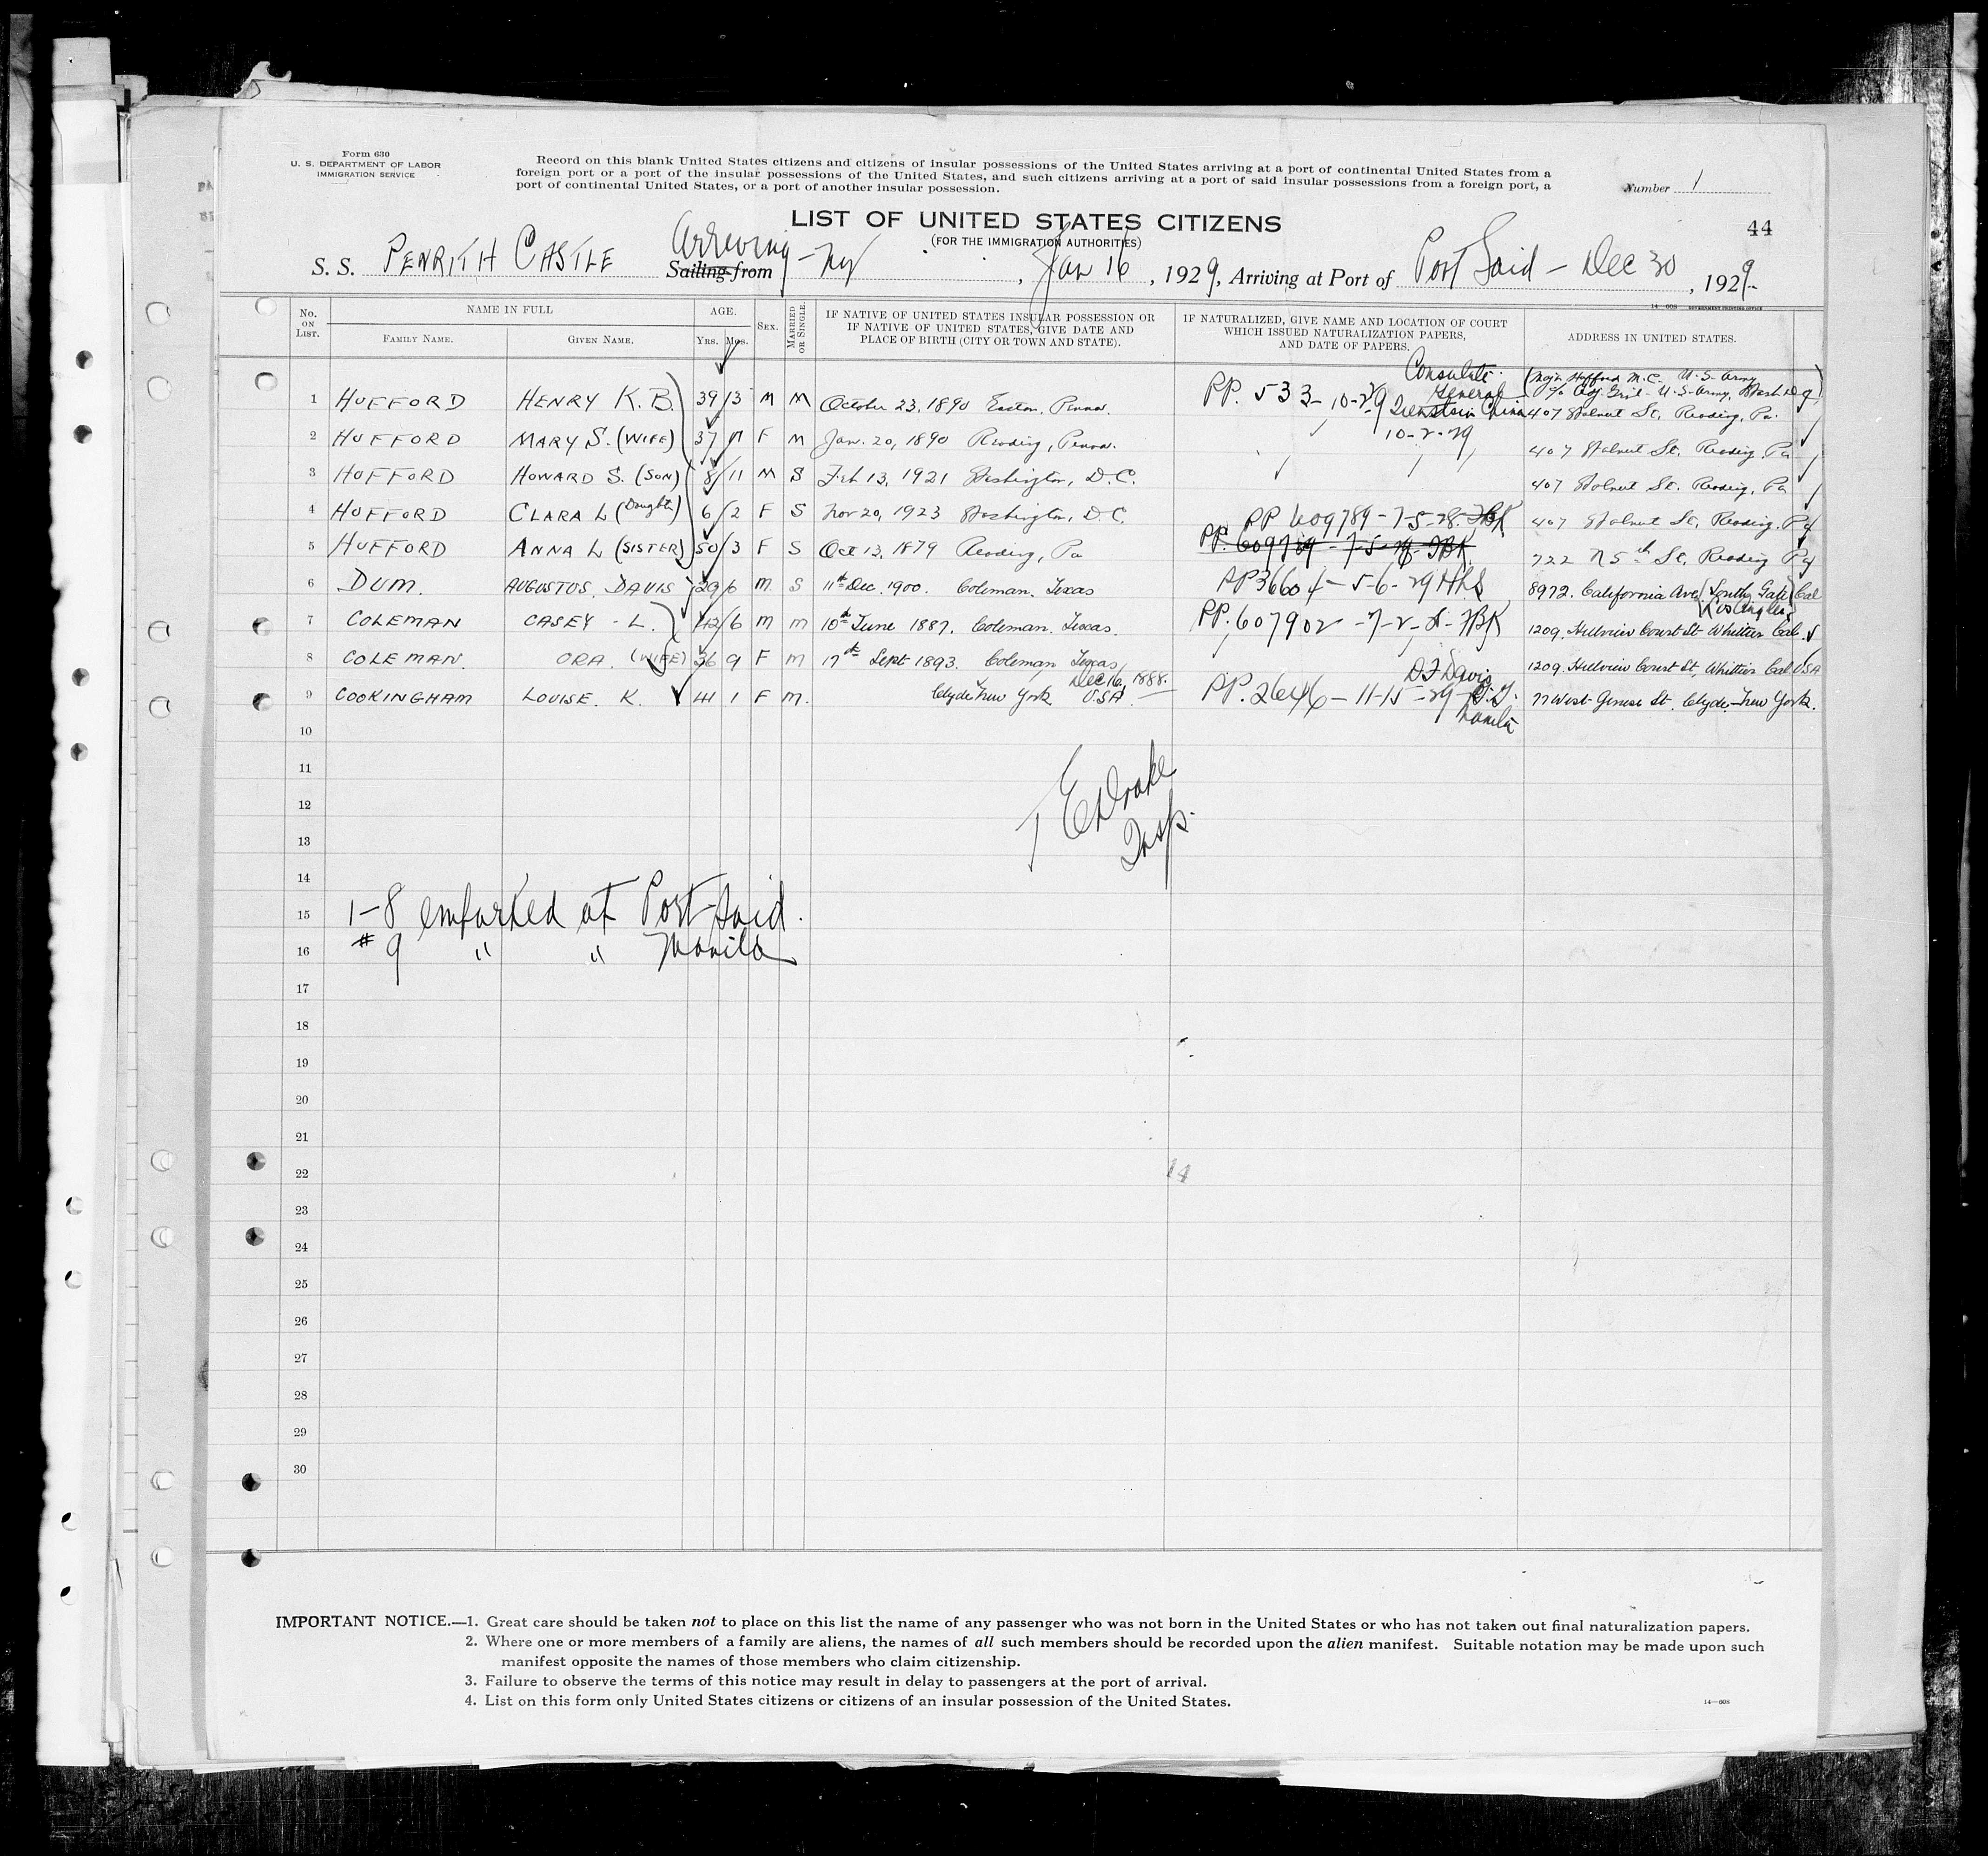 Form 630
U. S. DEPARTMENT OF LABOR
IMMIGRATION SERVICE
Record on this blank United States citizens and citizens of insular possessions of the United States arriving at a port of continental United States from a
foreign port or a port of the insular possessions of the United States, and such citizens arriving at a port of said insular possessions from a foreign port, a
port of continental United States, or a port of another insular possession.
Number 1
LIST OF UNITED STATES CITIZENS
(FOR THE IMMIGRATION AUTHORITIES)
44
S. S. PENRITH CASTLE Arriving Sailing from - NY, Jan 16, 1929, Arriving at Port of Port Said - Dec 30, 1929
14-608 GOVERNMENT PRINTING OFFICE
No. ON LIST. NAME IN FULL AGE. SEX. MARRIED OR SINGLE. IF NATIVE OF UNITED STATES INSULAR POSSESSION OR IF NATIVE OF UNITED STATES, GIVE DATE AND PLACE OF BIRTH (CITY OR TOWN AND STATE). IF NATURALIZED, GIVE NAME AND LOCATION OF COURT WHICH ISSUED NATURALIZATION PAPERS, AND DATE OF PAPERS. ADDRESS IN UNITED STATES.
FAMILY NAME. GIVEN NAME. Yrs. Mos.
Consulate General
(Maj. Hufford M.C. U.S. Army
c/o Adj. Gen'l - U.S. Army, Wash D.C.)
1 HUFFORD HENRY K. B. 39/3 M M October 23, 1890 Easton, Penna. PP. 533-10-2-9 China 407 Walnut St, Reading, Pa.
10-2-29
2 HUFFORD MARY S. (WIFE) 37/11 F M Jan. 20, 1890 Reading, Penna. 407 Walnut St. Reading, Pa
3 HUFFORD HOWARD S. (SON) 8/11 M S Feb 13, 1921 Washington, D.C. 407 Walnut St. Reading, Pa
4 HUFFORD CLARA L (Daughter) 6/2 F S Nov 20, 1923 Washington, D.C. PP 609789-7-5-28. FBK 407 Walnut St, Reading, Pa
5 HUFFORD ANNA L (SISTER) 50/3 F S Oct 13, 1879 Reading, Pa PP. 609789-7-5-28-FBK 722 N 5th St, Reading Pa
6 DUM. AUGUSTUS, DAVIS 29/6 M. S 11th Dec. 1900. Coleman, Texas PP 36604-5-6-29 8972. California Ave (South Gate Los Angeles) Cal
7 COLEMAN CASEY - L. 42/6 M M 10th June 1887. Coleman, Texas. PP. 607902-7-2-8-FBK 1209. Hillview Court St Whittier Cal.
8 COLEMAN. ORA. (WIFE) 36 9 F M 17th Sept 1893. Coleman Texas 1209. Hillview Court St, Whittier Cal USA
Dec 16, 1888.
D F Davis
9 COOKINGHAM LOUISE. K. 41 1 F M. Clyde New York USA PP. 2646-11-15-29 G.G. Manila 77 West Genese St. Clyde - New York.
10
11
12
13
T E Drake
Insp.
14
15 1-8 embarked at Port Said.
16 # 9 " " Manila
17
18
19
20
21
22
14
23
24
25
26
27
28
29
30
IMPORTANT NOTICE.—1. Great care should be taken not to place on this list the name of any passenger who was not born in the United States or who has not taken out final naturalization papers.
2. Where one or more members of a family are aliens, the names of all such members should be recorded upon the alien manifest. Suitable notation may be made upon such
manifest opposite the names of those members who claim citizenship.
3. Failure to observe the terms of this notice may result in delay to passengers at the port of arrival.
4. List on this form only United States citizens or citizens of an insular possession of the United States.
14—608